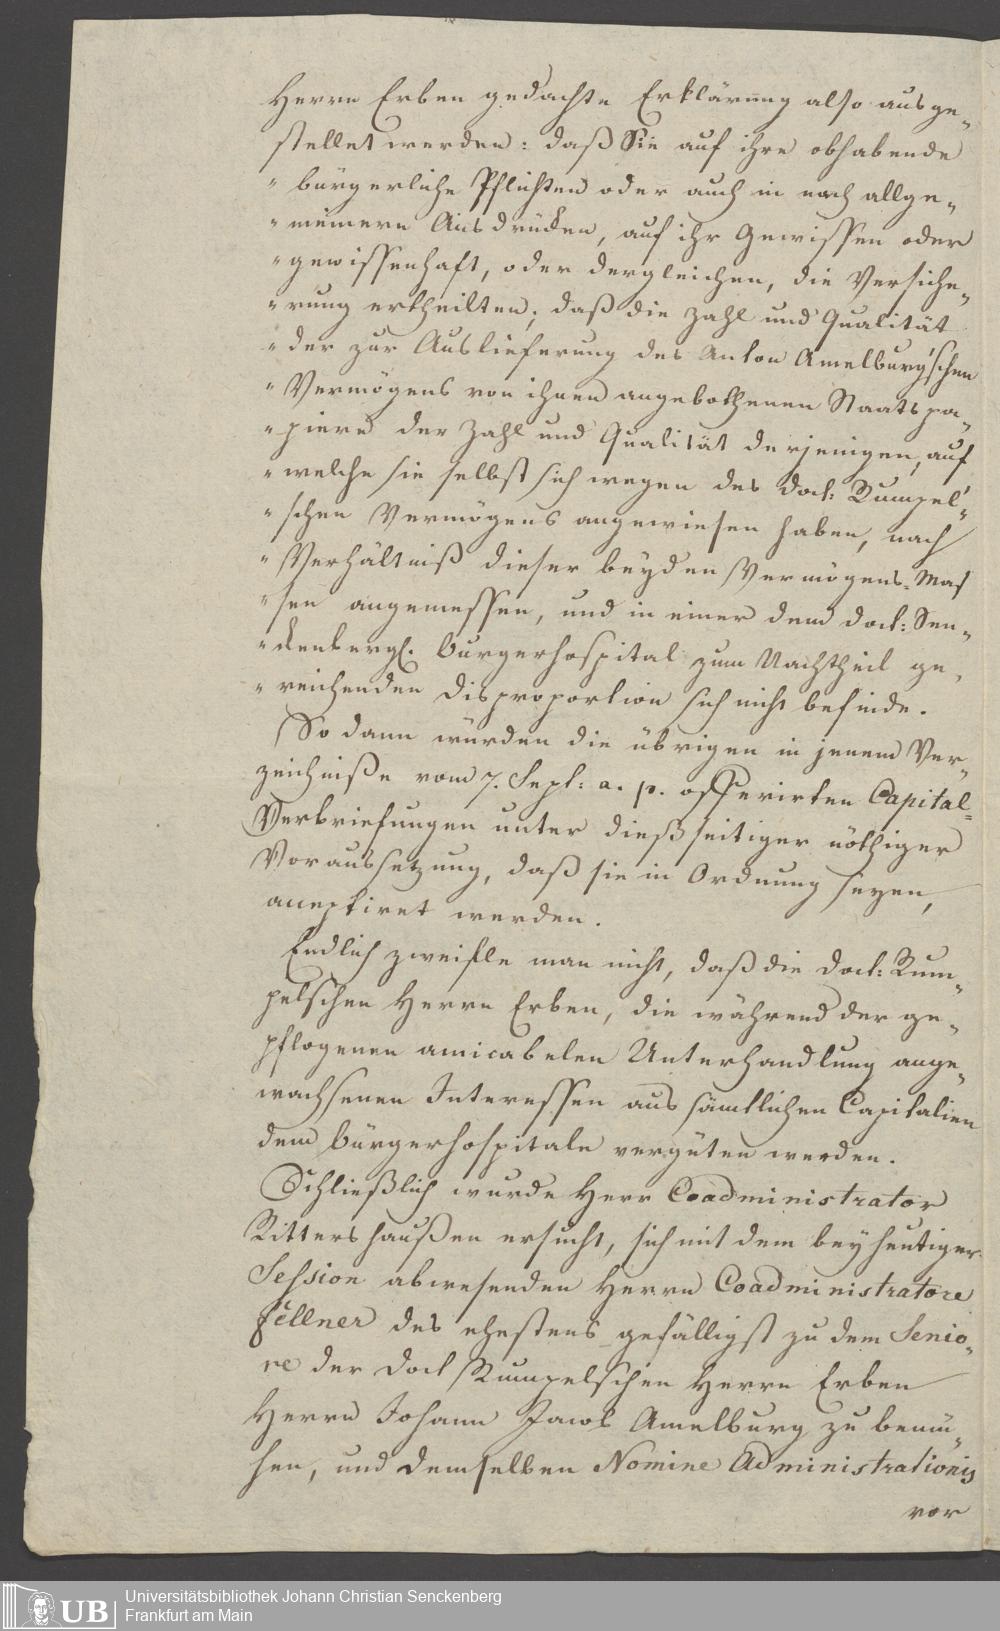 Herrn Erben gedachte Erklärung also ausge„
stellet werden: daß Sie auf ihre obhabende
" bürgerliche Pflichten oder auch in noch allge„
" meinern Ausdrücken, auf ihr Gewissen oder
" gewissenhaft, oder dergleichen, die Versiche„
" rung ertheilten; daß die Zahl und Qualität
" der zur Auslieferung des Anton Amelburg'schen
" Vermögens von ihnen angebothenen Staatspa„
" piere der Zahl und Qualität derjenigen, auf
" welche sie selbst sich wegen des doct: Rumpel'„
" schen Vermögens angewiesen haben, nach
" Verhältniß dieser beyden Vermögens-Mas
" sen angemessen, und in einer dem doct: Sen„
" ckenbergl. Burgerhospital zum Nachtheil ge„
" reichenden Disproportion sich nicht befinde.
So dann würden die übrigen in jenem Ver„
zeichniße vom 7. Sept: a. p. offerirten Capital-
Verbriefungen unter dießseitiger nöthiger
Voraussetzung, daß sie in Ordnung seyen,
acceptiret werden.
Endlich zweifle man nicht, daß die doct: Rum„
pelschen Herrn Erben, die während der ge„
pflogenen amicabelen Unterhandlung ange„
wachsenen Interessen aus sämtlichen Capitalien
dem bürgerhospitale vergüten werden.
Schließlich wurde Herr Coadministrator
Rittershaußen ersucht, sich mit dem bey heutiger
Session abwesenden Herrn Coadministratore
Fellner des ehestens gefälligst zu dem Senio„
re der doct Rumpelschen Herrn Erben
Herrn Johann Jacob Amelburg zu bemü„
hen, und demselben Nomine Administrationis
vor
UB
Universitätsbibliothek Johann Christian Senckenberg
Frankfurt am Main